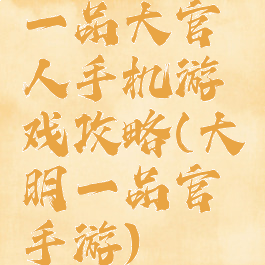 一品大官
人手机游
戏攻略(大
明一品官
手游)